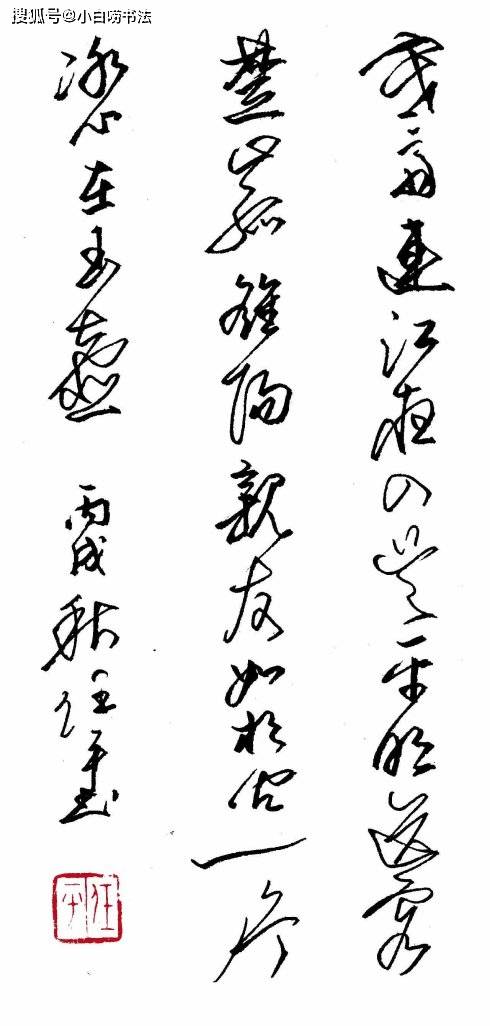 搜狐号@小白唠书法
寒雨連江夜入吴平明送客
楚山孤雒陽親友如相问一片
冰心在玉壺
丙戌秋任平书
任平